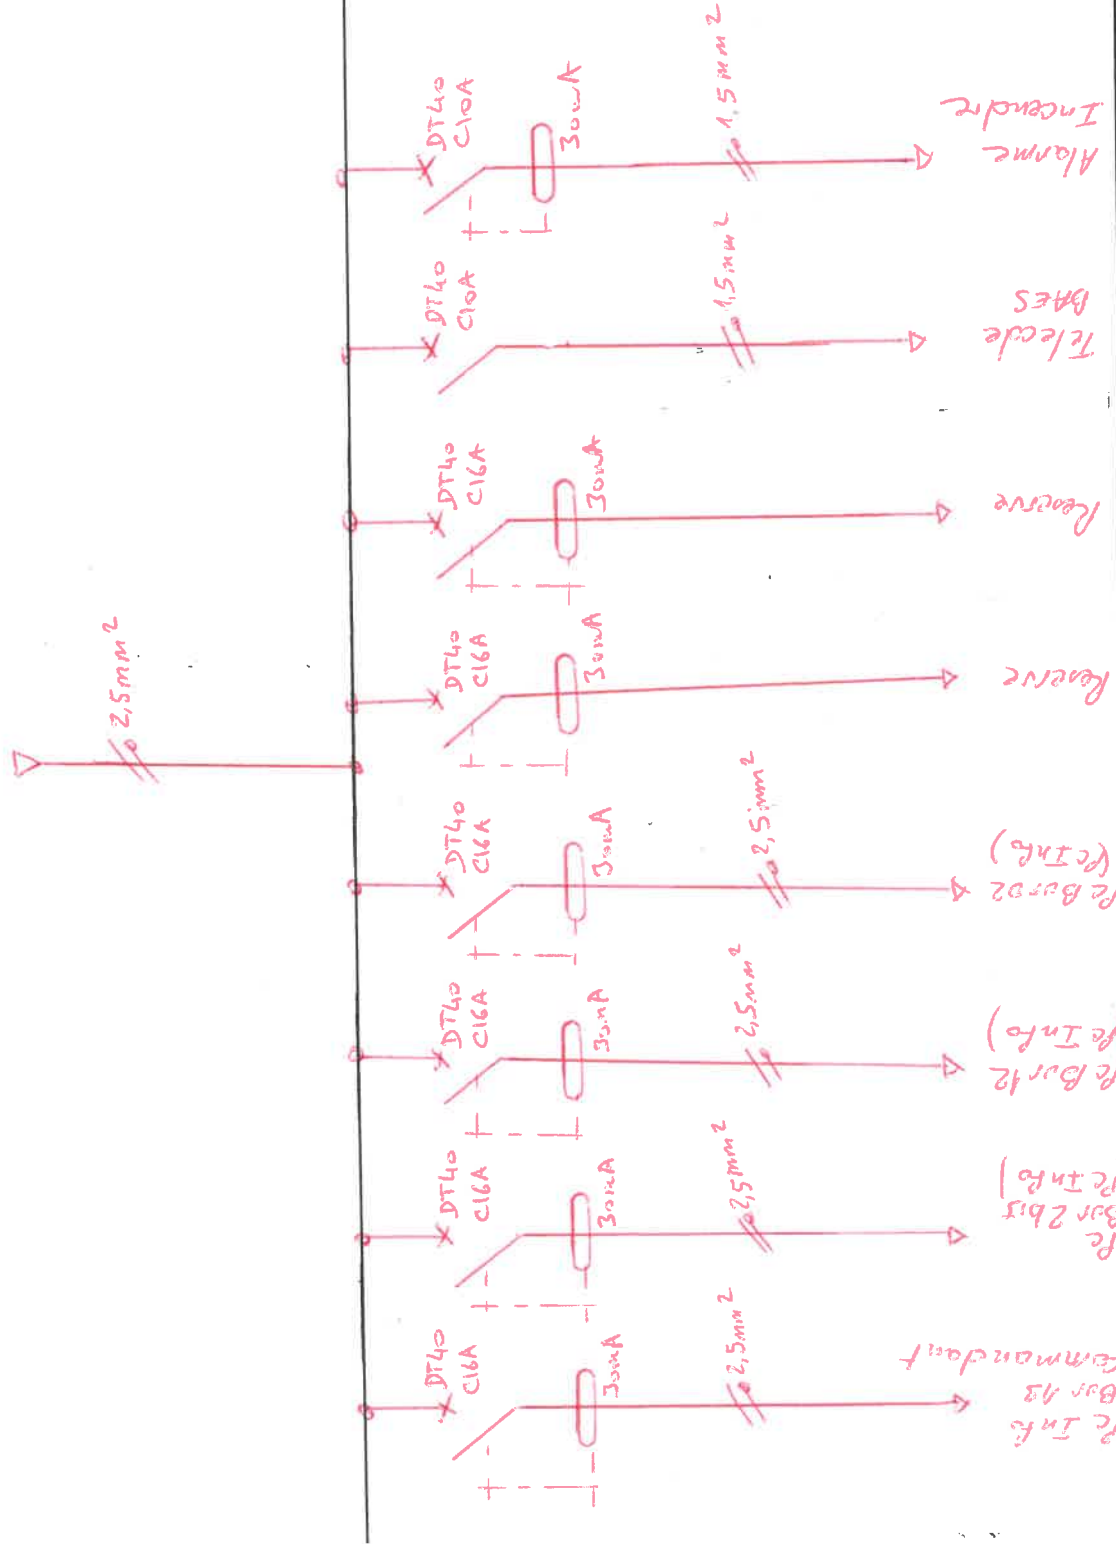 2,5mm²
DT40
C10A
30mA
1,5mm²
Alarme
Incendre
DT40
C10A
1,5mm²
Telecde
BAES
DT40
C16A
30mA
Reserve
DT40
C16A
30mA
Reserve
DT40
C16A
30mA
2,5mm²
Pc Bur 02
(Pc Info)
DT40
C16A
30mA
2,5mm²
Pc Bur 12
Pc Info)
DT40
C16A
30mA
2,5mm²
Pc
Bur 2bis
Pc Info)
DT40
C16A
30mA
2,5mm²
Pc Info
Bur 13
Commandant